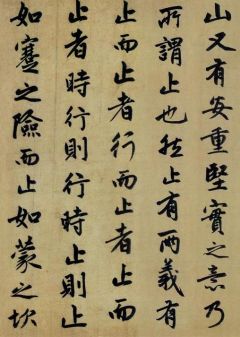 山又有安重堅實之意乃
所謂止也然止有兩義有
止而止者行而止者止而
止者時行則行時止則止
如蹇之險而止如蒙之坎